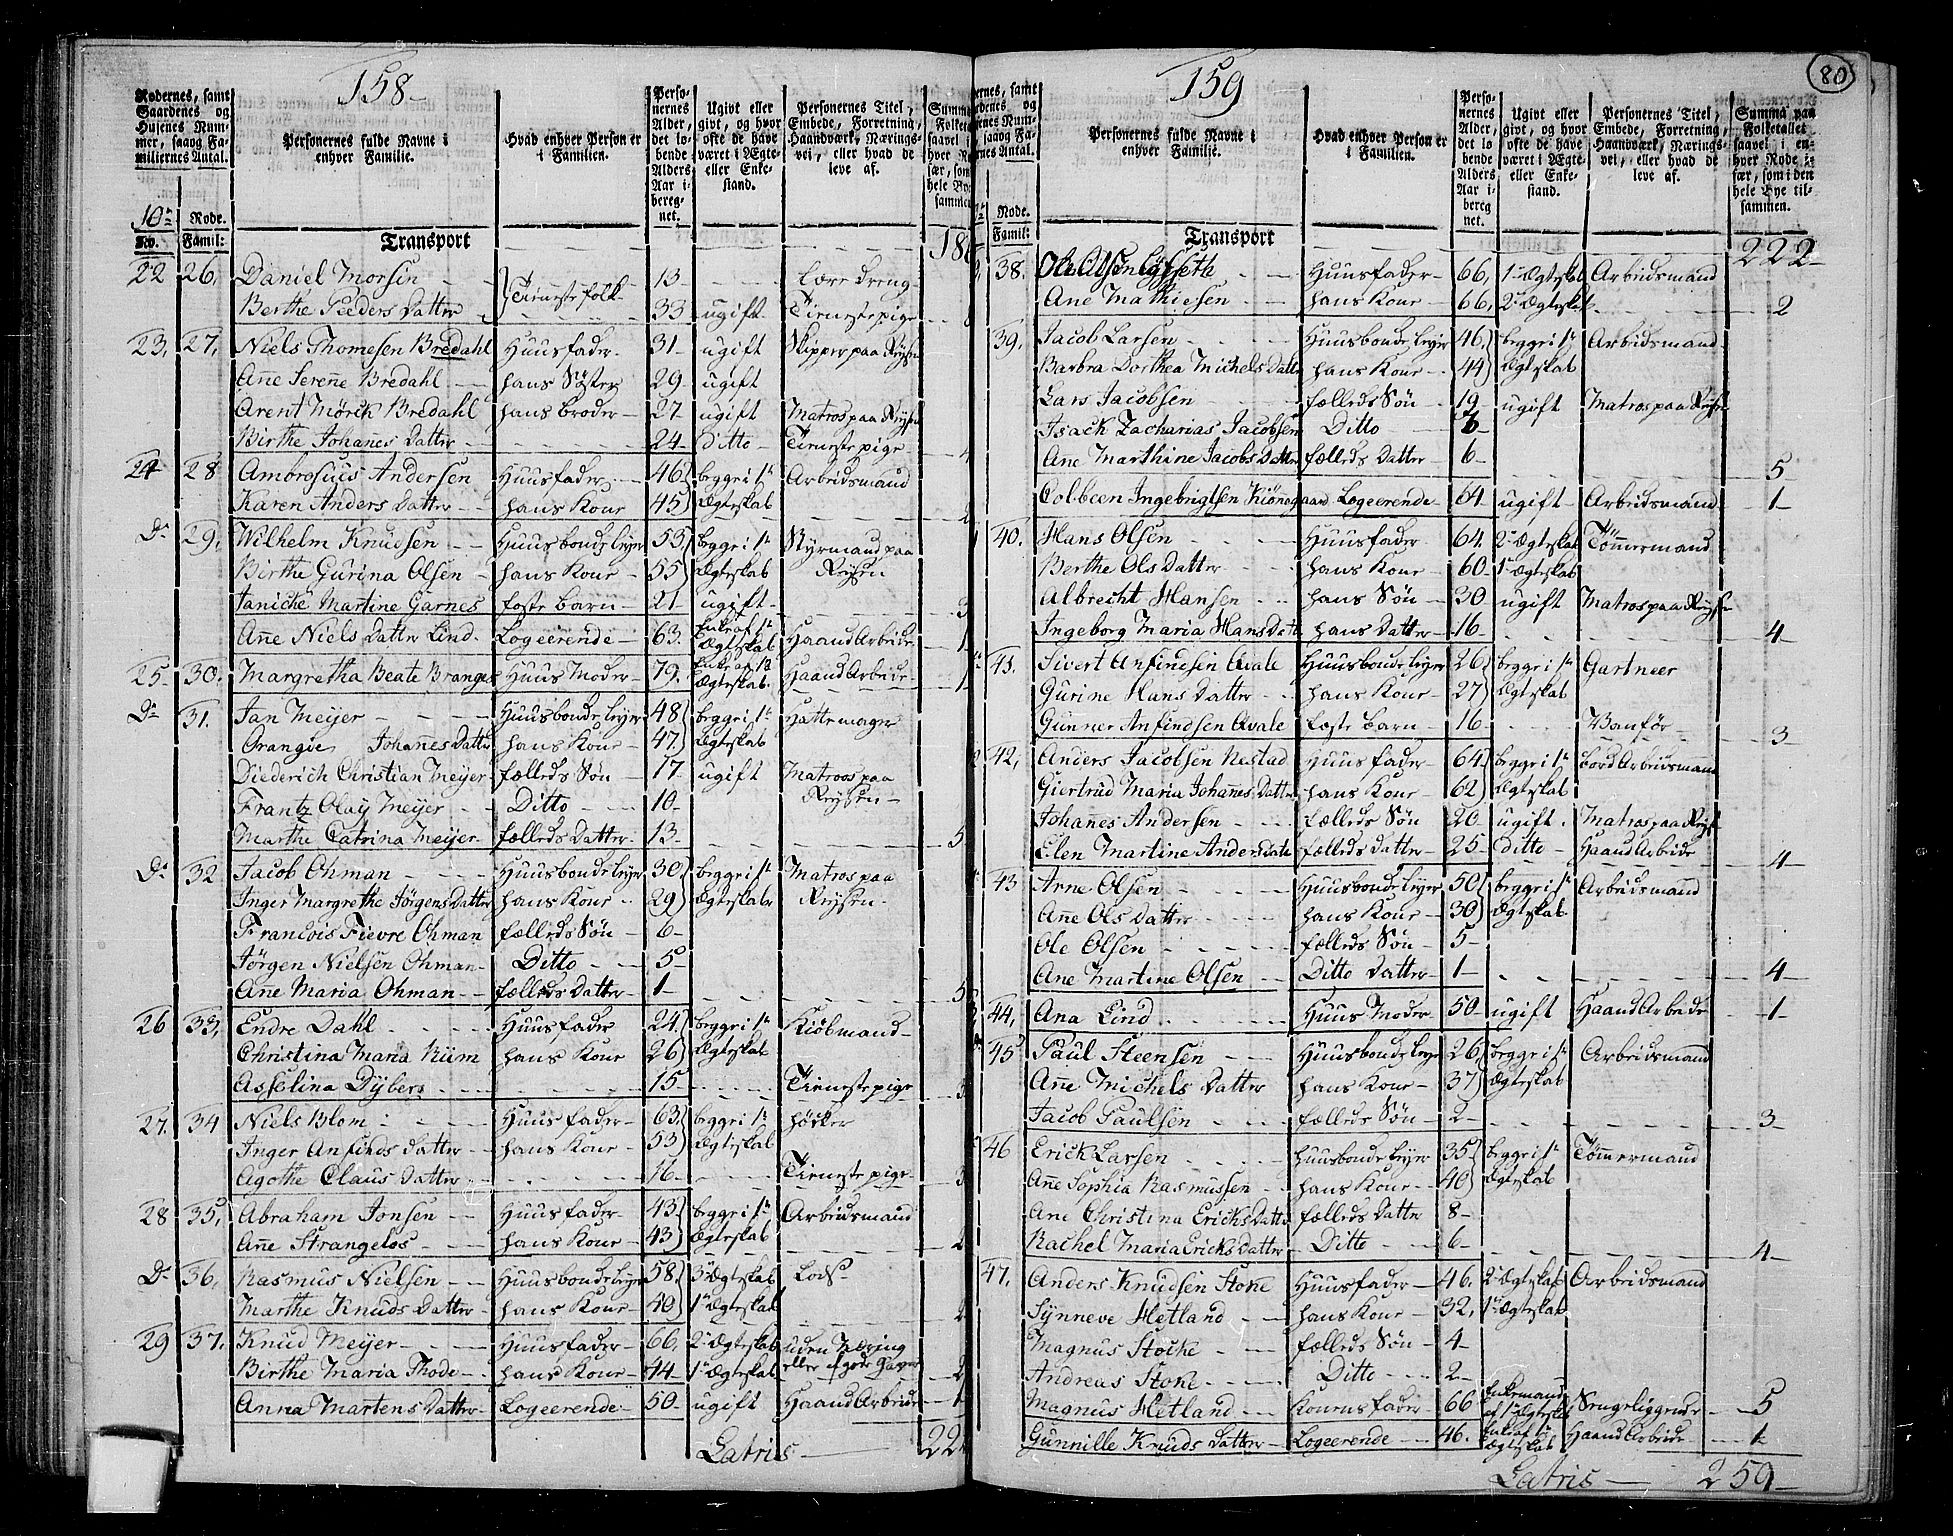 158-
Rodernes, samt Gaardenes og Husenes Nummer, saaog Familiernes Antal.
Personernes fulde Navne i enhver Familie.
Hvad enhver Person er i Familien.
Personernes Alder, det løbende Alders Aar iberegnet.
Ugivt eller givt, og hvor ofte de have været i Ægte- eller Enkestand.
Personernes Titel, Embede, Forretning, Haandværk, Næringsvei, eller hvad de leve af.
10de Rode.
No. Famil: Transport
22 26, Daniel Morsen Tieneste folk 13 - Lære dreng
Berthe Peeders Datter 33 ugift Tienestepige
23, 27, Niels Thomesen Bredahl Huusfader 31 ugift Skipper paa Reysen
Anne Serenne Bredahl hans Søster 29 ugift
Arent Mörck Bredahl hans Broder 27 ugift Matros paa Reysen
Birthe Johannes Datter 24 Ditto Tienestepige
24 28 Ambrosius Andersen Huusfader 46 begge i 1te Arbeidsmand
Karen Anders Datter hans Kone 45 Ægteskab
Do 29, Wilhelm Knudsen Huusbonde leyer 53 begge i 1te Styrmand paa
Birthe Gurina Olsen hans Kone 55 Ægteskab Reysen
Taniche Martine Garnes foster barn 21 ugift 3
Anne Niels Datter Lind Logeerende 63 Enke af 1te Ægteskab Haand Arbeide 1
25 30. Margretha Beate Branges Huus Moder 79. Enke af Ægteskab Haand Arbeide 1
Do 31. Jan Meyer Huusbonde leyer 48 begge i 1te Hattemager
Orangie Johannes Datter hans Kone 47 Ægteskab
Diederich Christian Meyer fælleds Søn 17 ugift Matros paa
Frantz Olay Meyer Ditto 10 Reysen
Marthe Catrina Meyer fælleds Datter 13 5
Do 32 Jacob Ohman Huusbonde leyer 30 begge i 1te Matros paa
Inger Margrethe Jörgens Datter hans Kone 29 Ægteskab Reysen
Francois Fievre Ohman fælleds Søn 6
Jörgen Nielsen Ohman Ditto 5
Anne Maria Ohman fælleds Datter 1 5
26 33, Endre Dahl Huusfader 24 begge i 1te Kiøbmand
Christina Maria Kiim hans Kone 26 Ægteskab
Asselina Dybers 15 Tienestepige 3
27. 34 Niels Blom Huusfader 63 begge i 1te Høcker
Inger Anfinds Datter hans Kone 53 Ægteskab
Agothe Claus Datter 16 Tienestepige 3
28 35, Abraham Jonsen Huusfader 43 begge i 1te Arbeidsmand
Anne Strangeløs hans Kone 43 Ægteskab 2
Do 36, Rasmus Nielsen Huusbonde leyer 58 3de Ægteskab Lods
Marthe Knuds Datter hans Kone 40 1te Ægteskab 2
29 37. Knud Meyer Huusfader 66, 2de Ægteskab uden Næring
Birthe Maria Thode hans Kone 44 1te Ægteskab eller af gode Gaver 2
Anna Martens Datter Logeerende 50 ugift Haand Arbeide 1
Latris 22
159
80
Personernes fulde Navne i enhver Familie.
Hvad enhver Person er i Familien.
Personernes Alder, det løbende Alders Aar iberegnet.
Ugivt eller givt, og hvor ofte de have været i Ægte- eller Enkestand.
Personernes Titel, Embede, Forretning, Haandværk, Næringsvei, eller hvad de leve af.
Summa paa Folketallet saavel i enhver Rode især, som i den hele Bye tilsammen.
Rode.
Famil: Transport 222
38. Huusfader 66, 1te Ægteskab Arbeidsmand
Ane Mathiesen hans Kone 66, 2de Ægteskab 2
39, Jacob Larsen Huusbonde leyer 46, begge i 1te Arbeidsmand
Barbra Dorthea Michels Datter hans Kone 44 Ægteskab
Lars Jacobsen fælleds Søn 19 ugift Matros paa Reysen
Isack Zacharias Jacobsen Ditto
Ane Marthine Jacobs Datter fælleds Datter 6 5
Colbeen Ingebrigtsen Kiönegaard Logeerende 64 ugift Arbeidsmand 1
40. Hans Olsen Huusfader 64. 2de Ægteskab Tömmermand
Berthe Ols Datter hans Kone 60 1te Ægteskab
Albrecht Hansen hans Søn 30 ugift Matros paa Reysen
Ingeborg Maria Hans Datter hans Datter 16 4
41. Sivert Anfindsen Qvale Huusbonde leyer 26 begge i 1te Gartneer
Gurine Hans Datter hans Kone 27 Ægteskab
Gunner Anfindsen Qvale foster barn 16 Vanfør 3
42, Anders Jacobsen Nestad Huusfader 64 begge i 1te Bord Arbeidsmand
Giertrud Maria Johannes Datter hans Kone 62 Ægteskab
Johanes Andersen fælleds Søn 20 ugift Matros paa Reysen
Elen Martine Anders datter fælleds Datter 25 ditto Haand Arbeide 4
43 Arne Olsen Huusbonde leyer 50 begge i 1te Arbeidsmand
Ane Ols Datter hans Kone 30 Ægteskab
Ole Olsen fælleds Søn 5
Ane Martine Olsen Ditto Datter 1 4
44, Ana Lind Huus Moder 50 ugift Haand Arbeide 1
45 Paul Steensen Huusbonde leyer 26, begge i 1te Arbeidsmand
Anne Michels Datter hans Kone 37 Ægteskab
Jacob Paulsen fælleds Søn 2 3
46 Erick Larsen Huusbonde leyer 35 begge i 1te Tömmermand
Ane Sophia Rasmussen hans Kone 40 Ægteskab
Ane Christina Ericks Datter fælleds Datter 8
Rachel Maria Ericks Datter Ditto 6 4
47. Anders Knudsen Stoke Huusfader 46. 2de Ægteskab Arbeidsmand
Synneve Hetland hans Kone 32, 1te Ægteskab
Magnus Stocke fælleds Søn 4
Andreas Stoke Ditto 2
Magnus Hetland Konens fader 66 Enkemand af 1te Ægteskab Sengeliggende 5
Gunnille Knuds Datter Logeerende 46. Enke af 1te Ægteskab Haand Arbeide 1
Latris 259